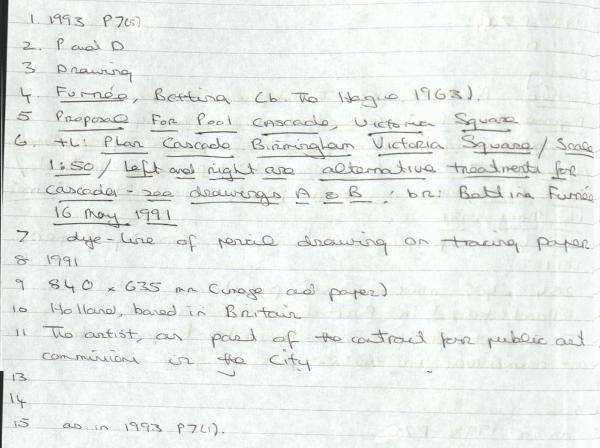 1. 1993 P7(5)
2. P and D
3 Drawing
4 Furnée, Bettina (b. The Hague 1963).
5 Proposal For Pool Cascade, Victoria Square
6. tl: Plan Cascade Birmingham Victoria Square / Scale
1:50 / Left and right are alternative treatments for
cascades - see drawings A & B ; br: Bettina Furnée
16 May 1991
7 dye-line of pencil drawing on tracing paper
8 1991
9 840 x 635 mm (image and paper)
10 Holland, based in Britain
11 The artist, as part of the contract for public art
commissions in the City.
13
14
15 as in 1993 P7(1).